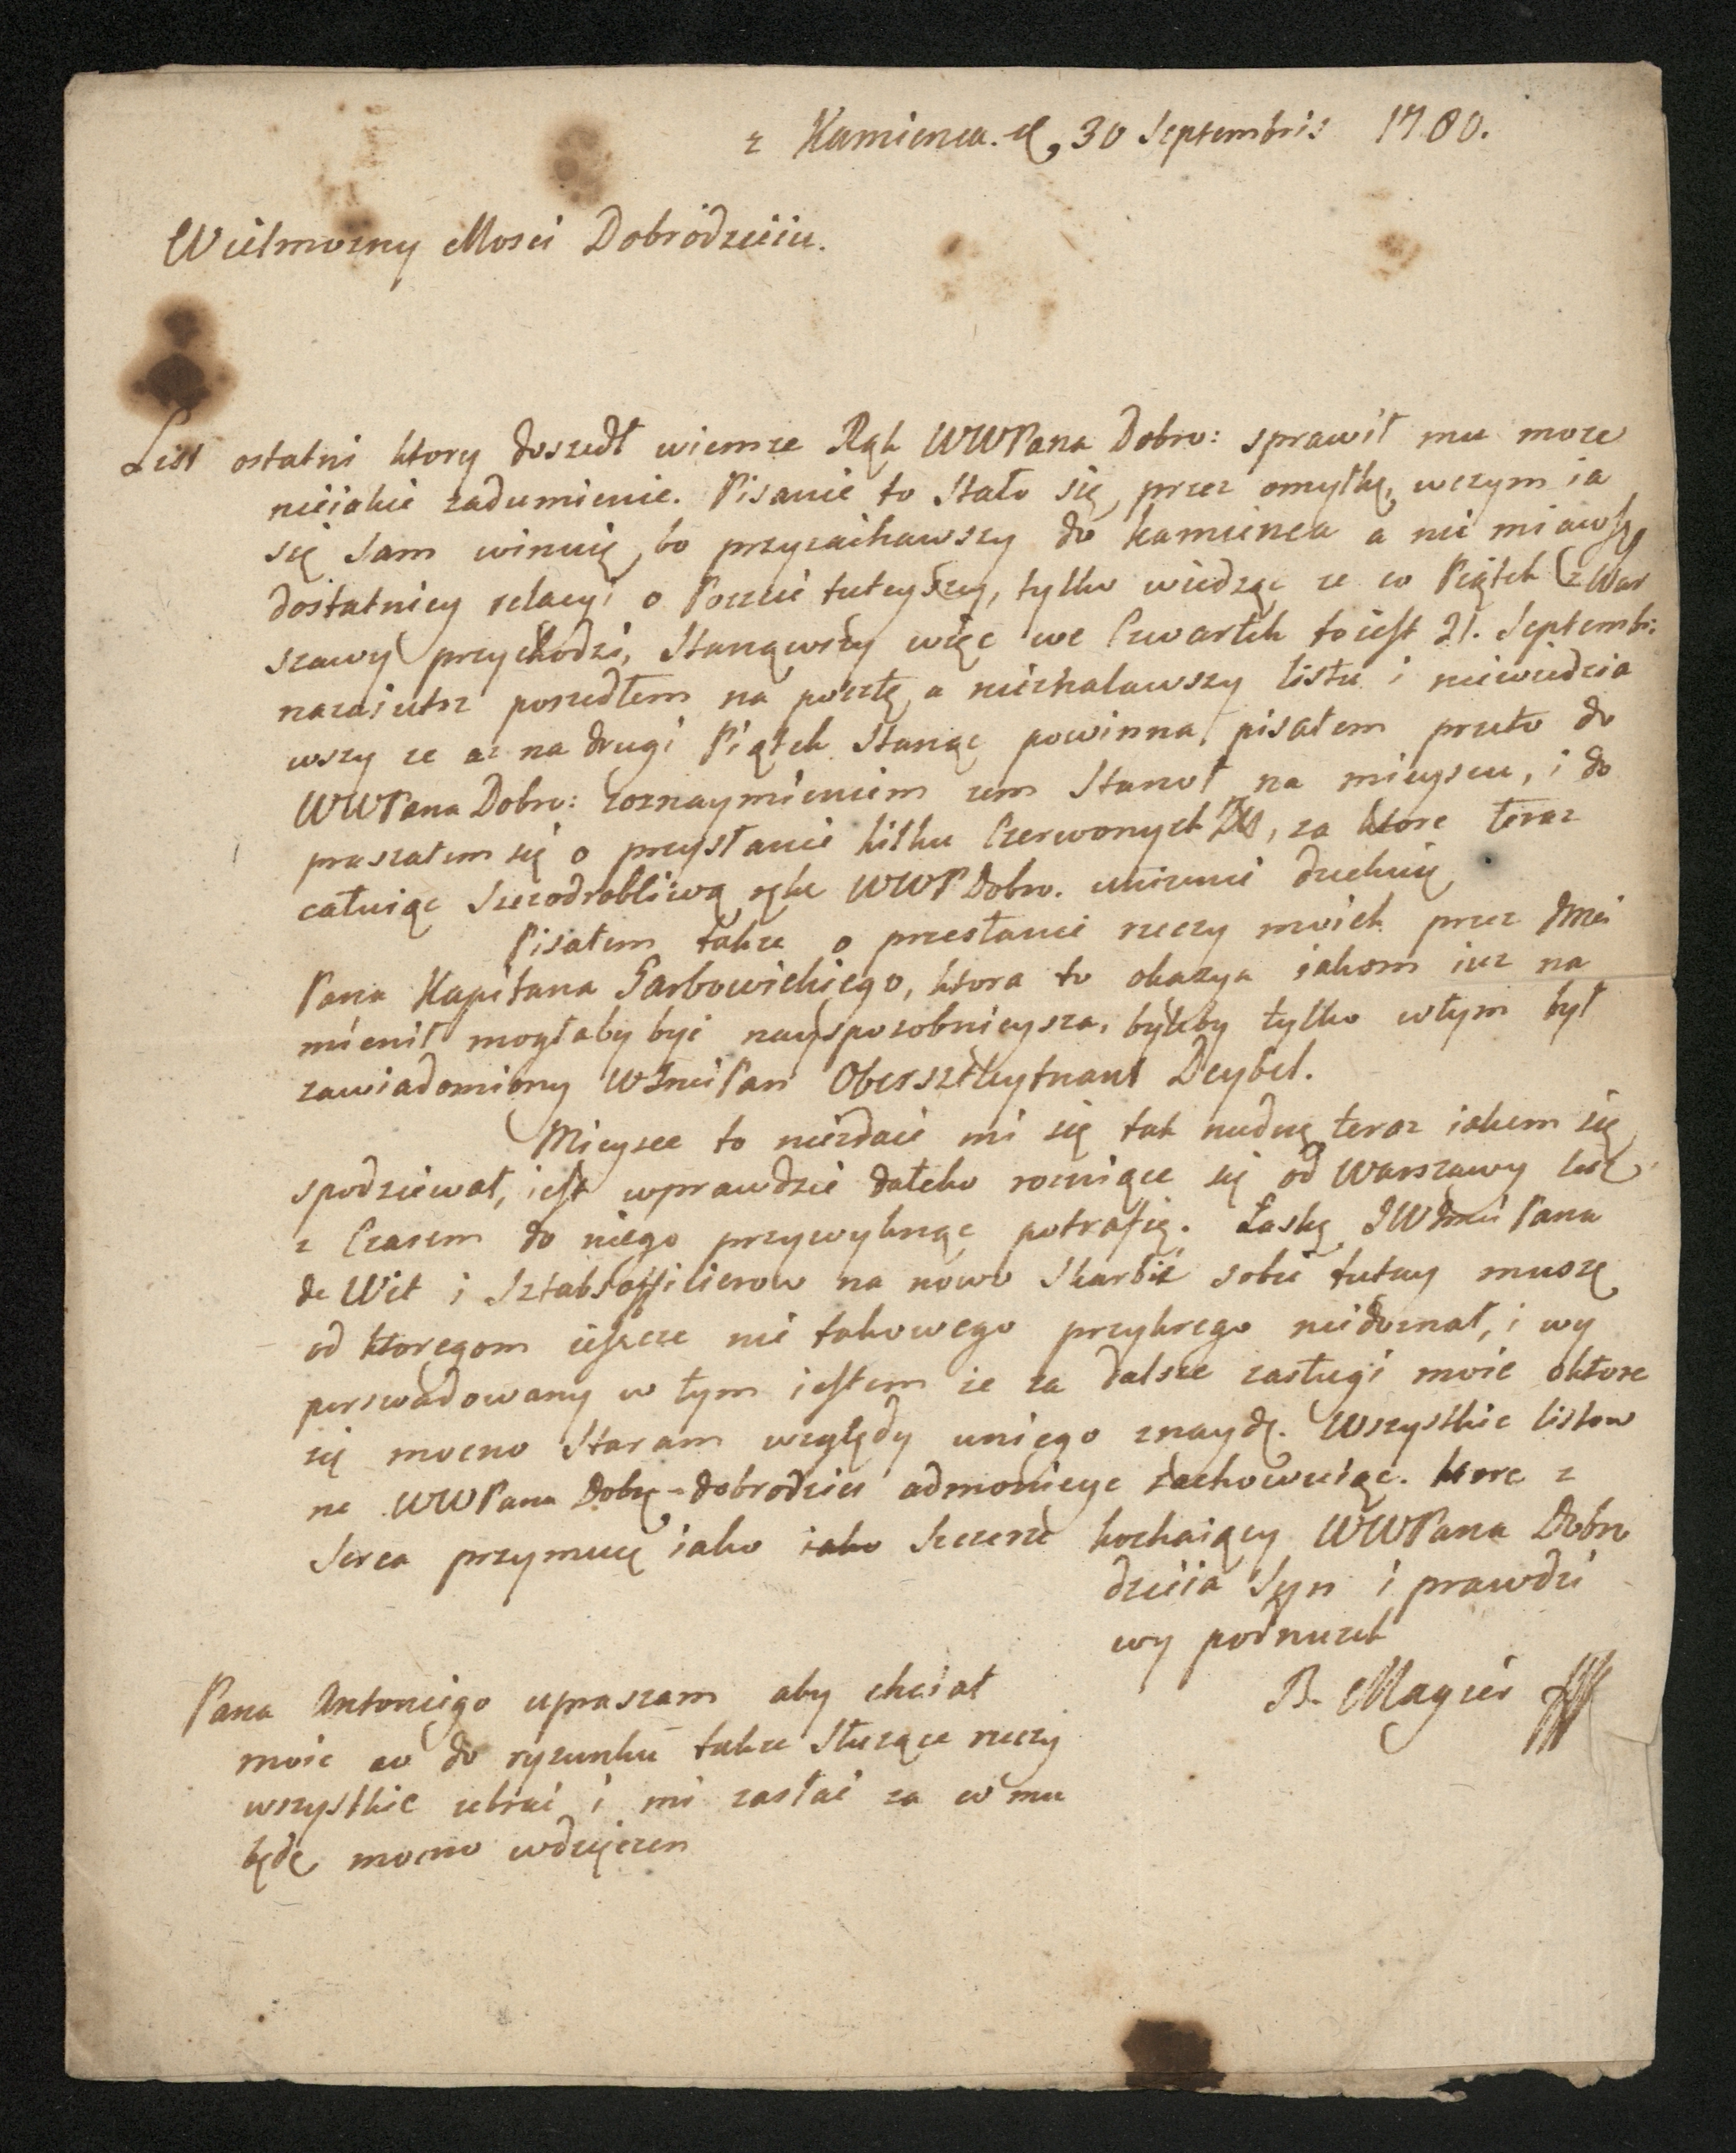 z Kamienca. d, 30 Septembris 1780.
Wielmozny Mosci Dobrodzieiu.
List ostatni ktory doszedł wiemze Rąk WWPana Dobro: sprawił mu moze
nieiakie zadumienie. Pisanie to Stało się przez omyłkę, wczym ia
się Sam winuię, bo przyiachawszy do kamienca a nie miawszy
dostatniey relacyi o Poczcie tuteyszey, tylko wiedząc ze co Piątek z War
szawy przychodzi, Stanąwszy więc we Czwartek to iest 21. Septembr:
nazaiutrz poszedłem na pocztę, a nieznalawszy listu i niewiedzia
wszy ze az na drugi Piątek Stanąc powinna, pisałem przeto do
WWPana Dobro: zoznaymieniem zem Stanoł na mieyscu, i do
praszałem się o przysłanie kilku Czerwonych Zł, za ktore teraz
całuiąc Szczodrobliwą rękę WWPDobro. unizenie dziekuię
Pisałem takze o przesłanie rzeczy moich przez Jmci
Pana Kapitana Garbowickiego, ktora to okazya iakom iuz na
mienił mogłaby byc nayspozobnieysza, byleby tylko wtym był
zawiadomiony WJmciPan Oberszteytnant Deybel.
Mieysce to niezdaie mi się tak nudne teraz iakem się
spodziewał, iest wprawdzie daleko rozniące się od Warszawy lecz
z Czasem do niego przywyknąc potrafię. Łaskę JWJmci Pana
de Wit i Sztabsofficierow na nowo Skarbic sobie tutay muszę
od ktoregom ieszcze nic takowego przykrego niedoznał, i wy
perswadowany w tym iestem ze za dalsze zasługi moie oktore
się mocno Staram względy uniego znaydę. Wszystkie listow
ne WWPana Dobrodzieia admonicye zachowuiąc. ktore z
Serca przymuię iako iako Szczerze kochaiący WWPana Dobro
dzieia Syn i prawdzi
wy podnuzek
B. Magier
Pana Antoniego upraszam aby chciał
moie co do rysunku takze Słuzące rzeczy
wszystkie zebrac i mi zasłac za co mu
będę mocno wdzięczen